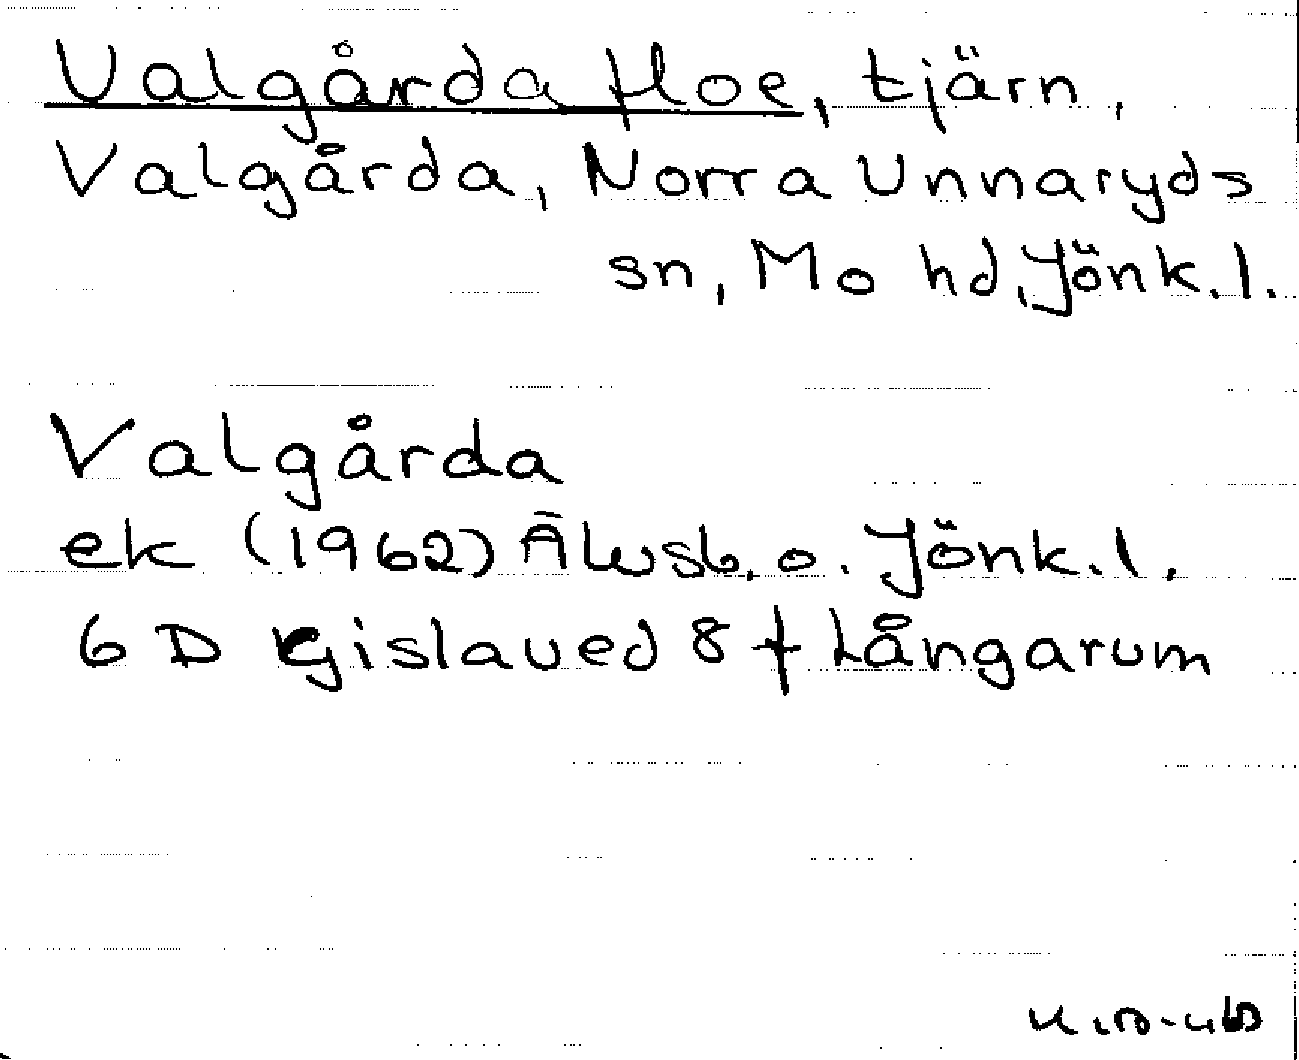 Valgårda Hoe, tjärn,
Valgårda, Norra Unnaryds
sn, Mo hd, Jönk.l.
Valgårda
ek (1962) Älvsb. o. Jönk.l.
6 D Gislaved 8 f Långarum